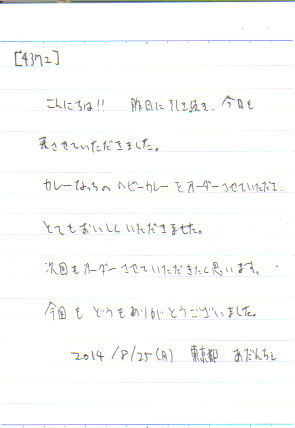 [4372]
こんにちは!! 昨日に引き続き、今日も
来させていただきました。
カレーなっちのベビーカレーをオーダーさせていただき、
とてもおいしくいただきました。
次回もオーダーさせていただきたく思います。
今回もどうもありがとうございました。
2014/8/25(月) 東京都 あだんちと